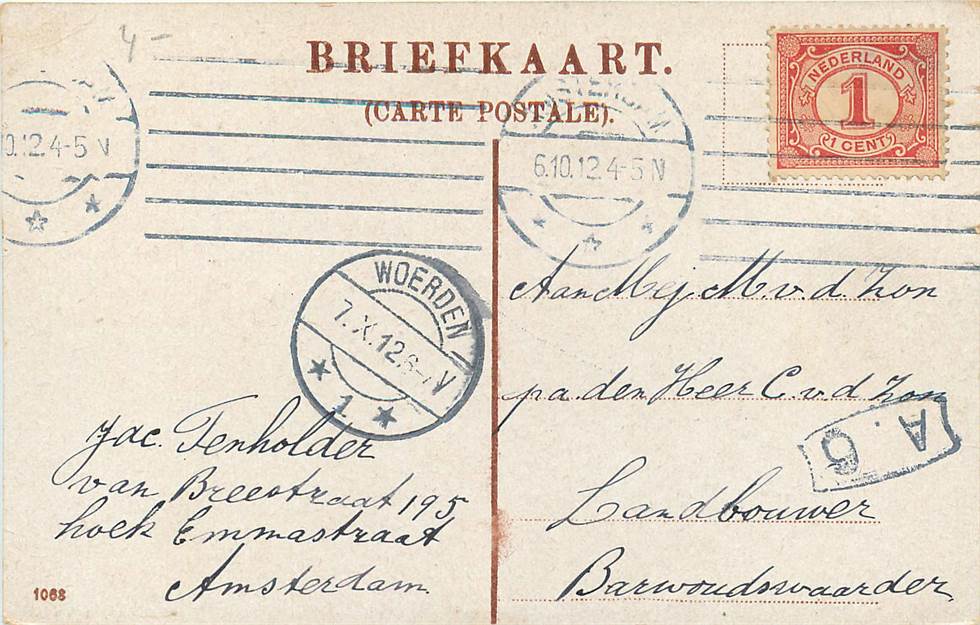 4-
BRIEFKAART.
(CARTE POSTALE).
NEDERLAND
1
1 CENT
0.12.4-5 V
6.10.12.4-5 V
WOERDEN
7.X.12.6-7 V
1
Aan Mej. M. v. d. Zon
pa. den Heer C. v. d. Zon
Landbouwer
Barwoudswaarder.
A. 6
Jac. Tenholder
van Breestraat 195
hoek Emmastraat
Amsterdam.
1068